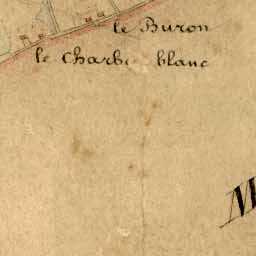 le Buron
le blanc
M